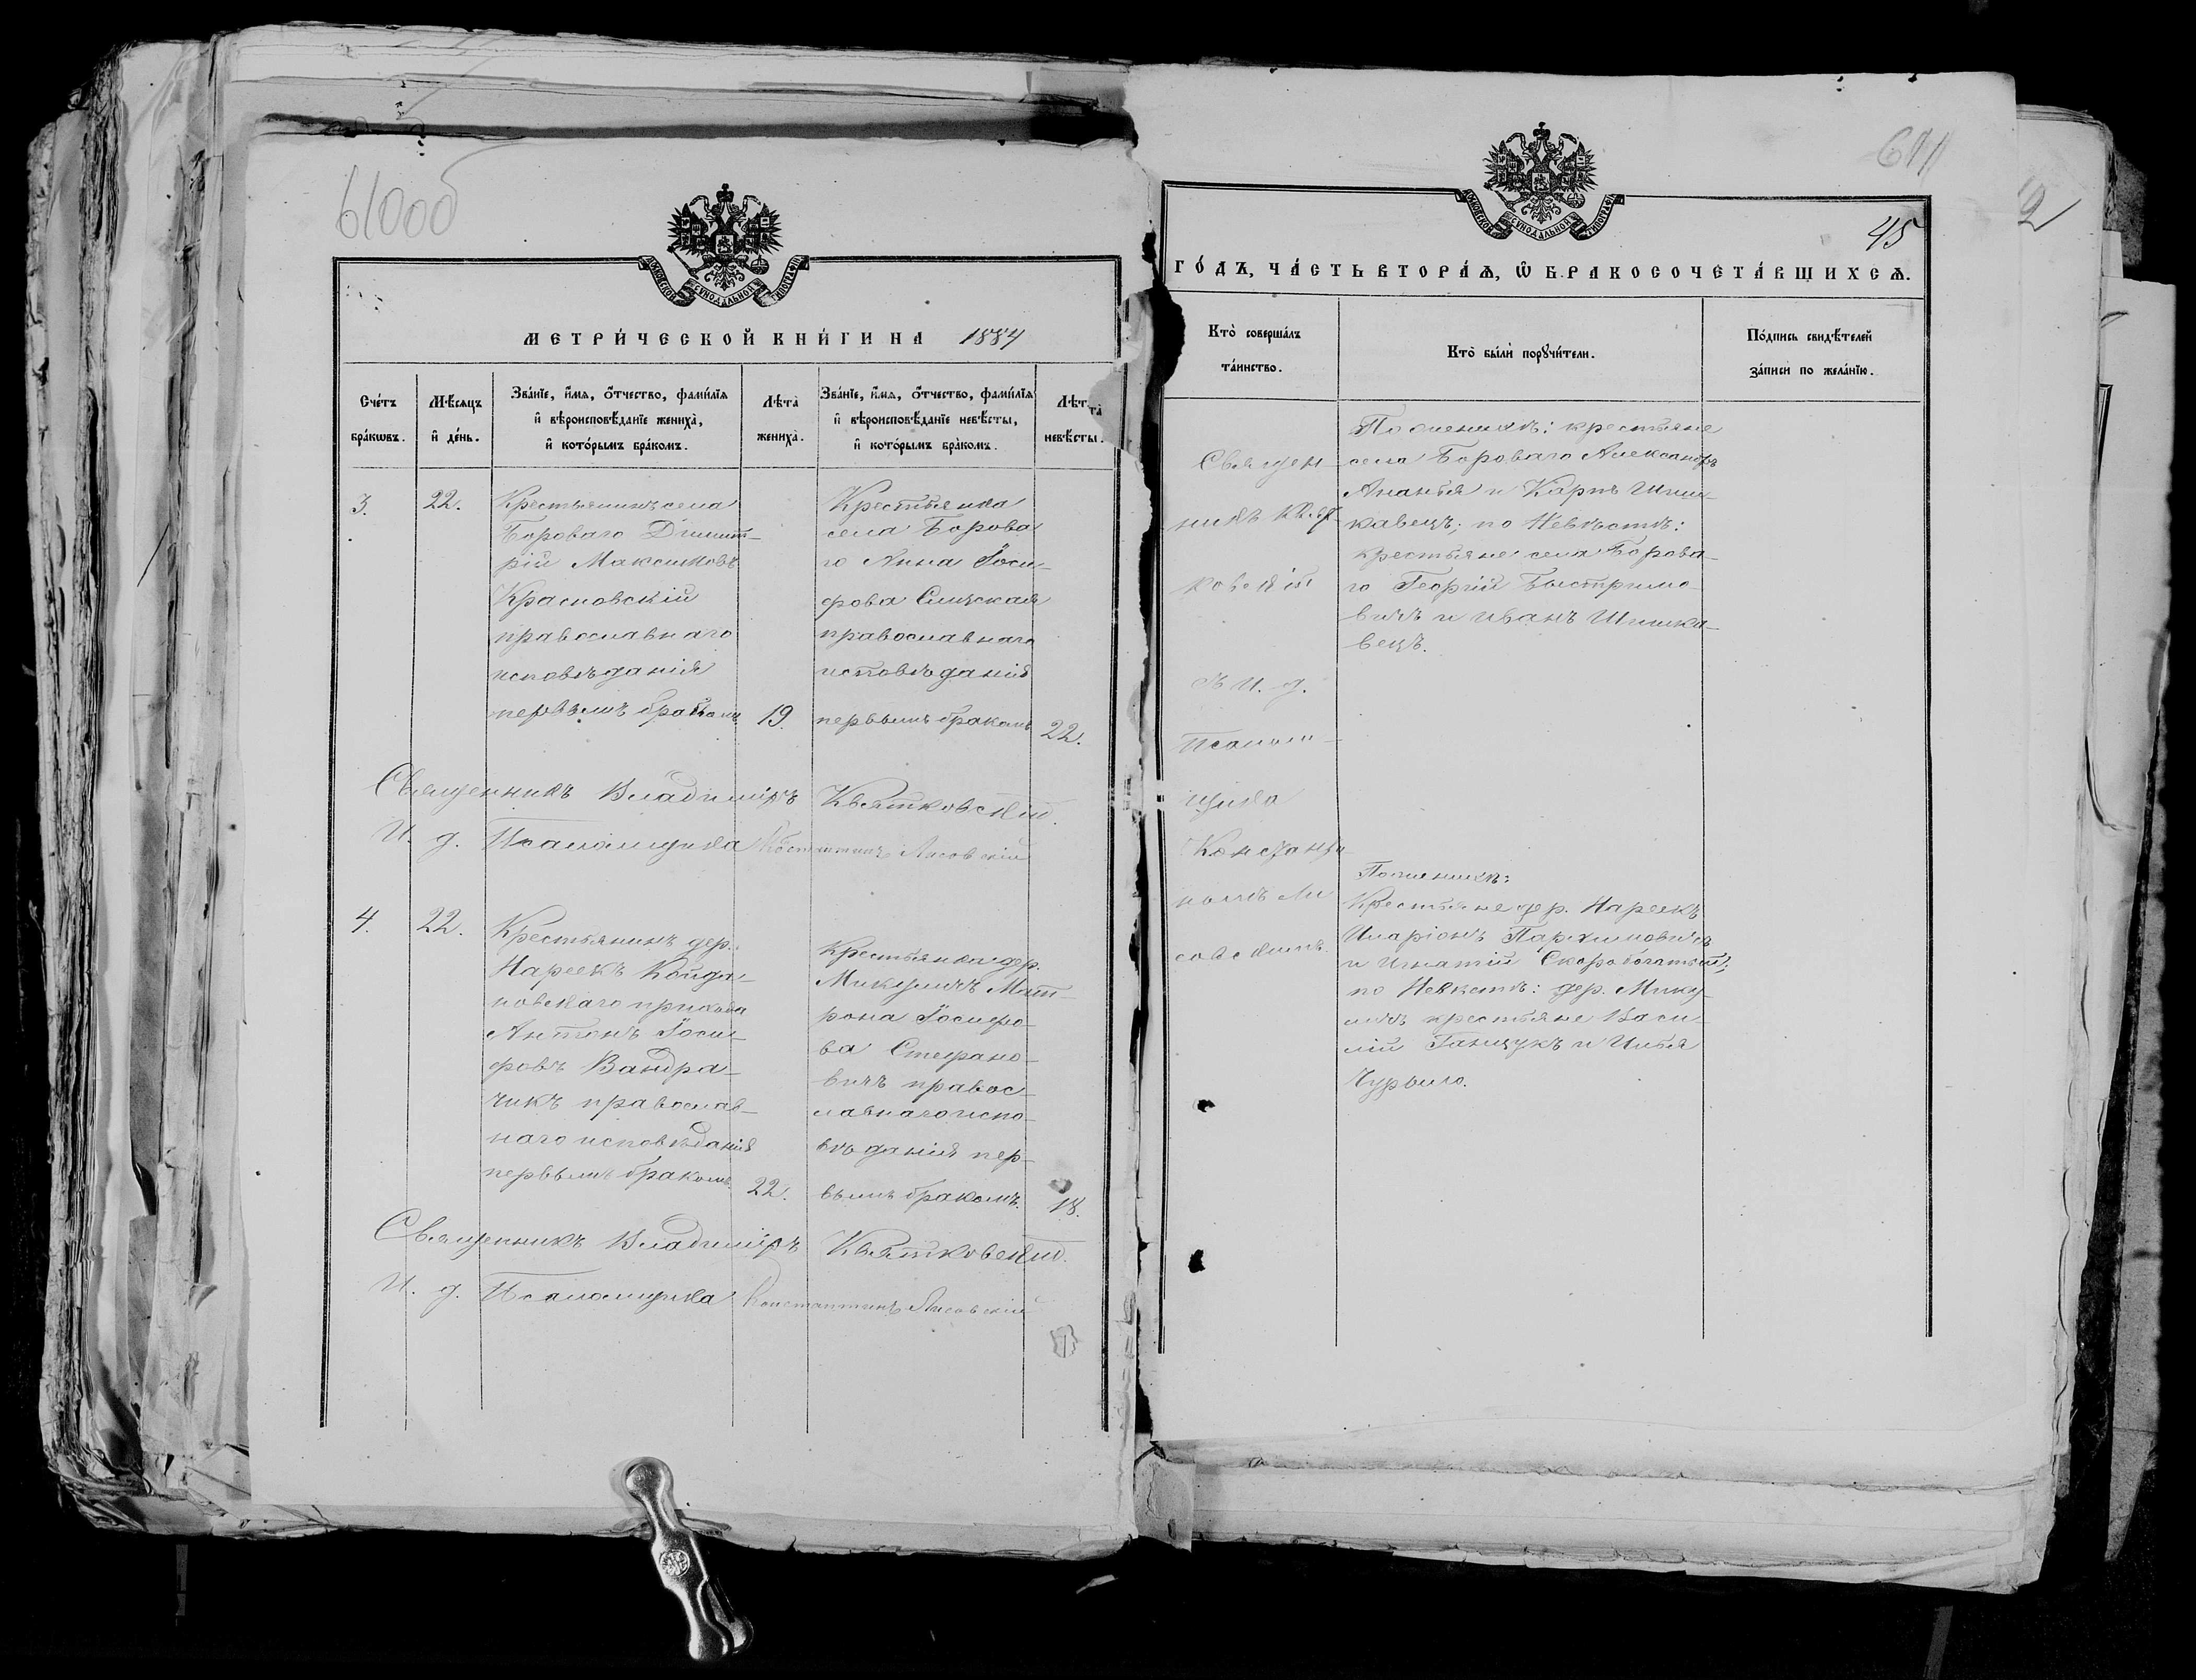 610об
МОСКОВСКОЙ СѴНОДАЛЬНОЙ ТИПОГРАФІИ
МЕТРИ́ЧЕСКОЙ КНИ́ГИ НА 1884
Сче́тъ бра́кѡвъ.
Мѣ́сяцъ и҆ де́нь.
Зва́нїе, и҆́мѧ, ѻ҆́тчество, фами́лїѧ и҆ вѣроисповѣ́данїе жениха̀, и҆ кото́рымъ бра́комъ.
Лѣта̀ жениха̀.
Зва́нїе, и҆́мѧ, ѻ҆́тчество, фами́лїѧ и҆ вѣроисповѣ́данїе невѣ́сты, и҆ кото́рымъ бра́комъ.
Лѣта̀ невѣ́сты.
3.
22.
Крестьянинъ села
Бороваго Димит-
рій Максимовъ
Красновскій
православнаго
исповѣданія
первымъ бракомъ
19.
Крестьянка
села Борова
го Анна Іоси-
фова Слизская
православнаго
исповѣданія
первымъ бракомъ
22.
Священникъ Владиміръ Квятковскій.
И. д. Псаломщика Константинъ Лисовскій
4.
22.
Крестьянинъ дер.
Нареекъ Койда-
новскаго прихода
Антонъ Іоси-
фовъ Вандра-
чикъ православ-
наго исповѣданія
первымъ бракомъ.
22.
Крестьянка дер.
Микуличъ Мат-
рона Іосифо-
ва Стефано-
вичъ правос-
лавнаго испо-
вѣданія пер-
вымъ бракомъ.
18.
Священникъ Владиміръ Квятковскій.
И. д. Псаломщика Константинъ Лисовскій
611
2
МОСКОВСКОЙ СѴНОДАЛЬНОЙ ТИПОГРАФІИ
45
ГО́ДЪ, ЧА́СТЬ ВТОРА́Ѧ, Ѡ БРАКОСОЧЕТА́ВШИХСѦ.
Кто̀ соверша́лъ та́инство.
Кто̀ бы́ли порꙋчи́тели.
По́дпись свидѣ́телей за́писи по жела́нїю.
Священ-
никъ Квят-
ковскій
съ и. д.
Псалом-
щика
Константи
номъ Ли
совскимъ.
По женихѣ: крестьяне
села Бороваго Александръ
Ананья и Карпъ Шиш-
кавецъ; по Невѣстѣ:
крестьяне села Борова-
го Георгій Быстримо-
вичъ и Иванъ Шишка-
вецъ.
По женихѣ:
Крестьяне дер. Нареекъ
Иларіонъ Пархимовичъ
и Игнатій Скоробогатый;
по Невѣстѣ: дер. Мику-
личъ крестьяне Васи-
лій Ганцукъ и Илья
Чурило.